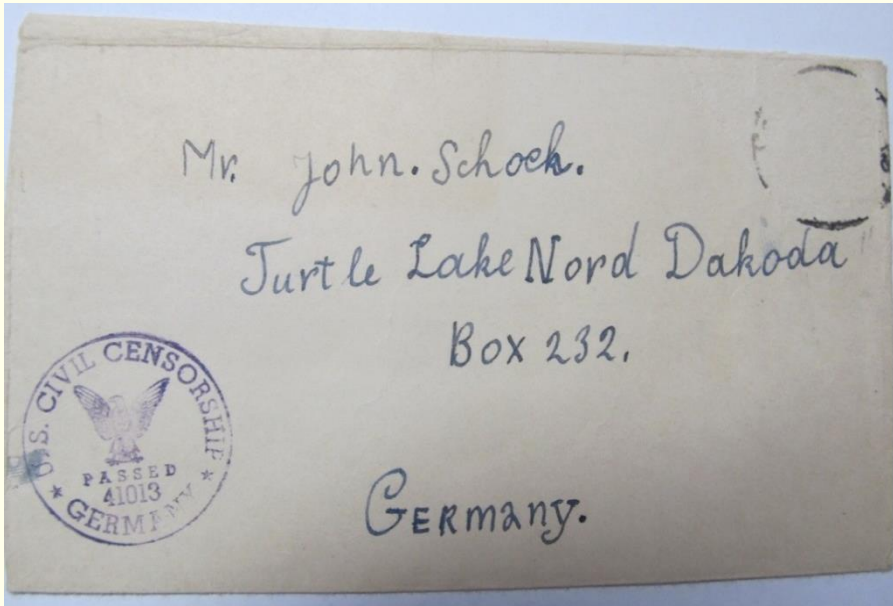 Mr. John. Schock.
Turtle Lake Nord Dakoda
Box 232.
U.S. CIVIL CENSORSHIP
PASSED
41013
GERMANY
Germany.